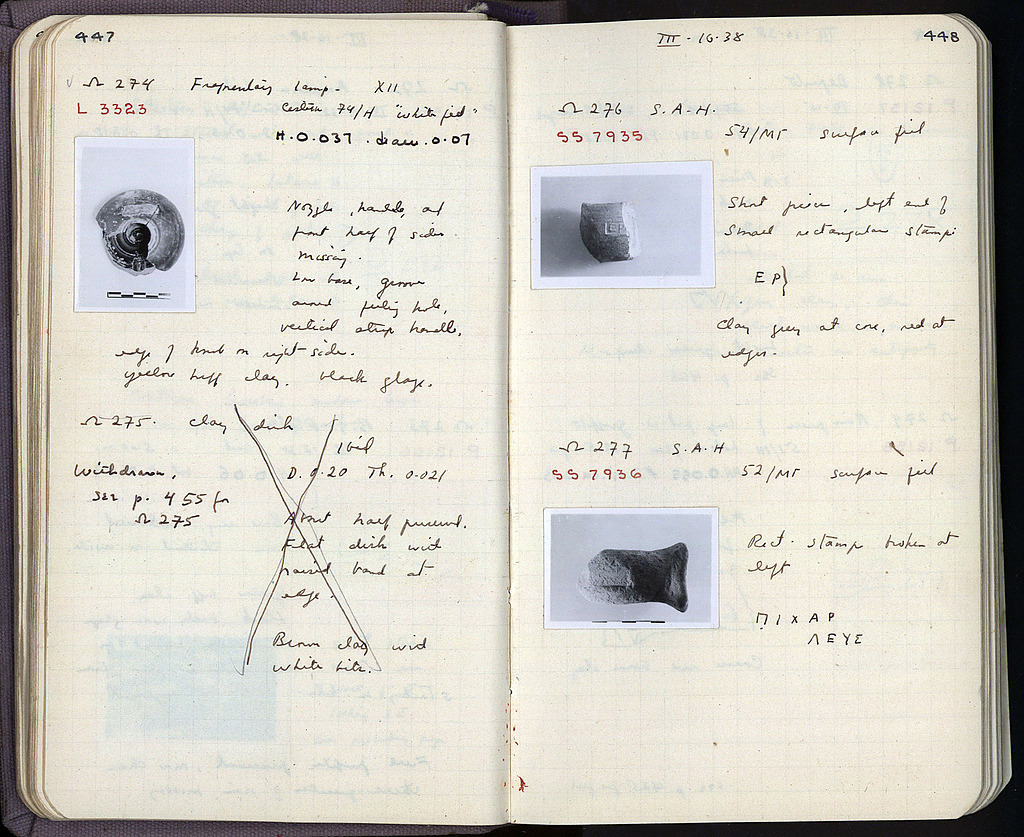 447
Ω 274 Fragmentary lamp. XII
L 3323 Cistern 74/H "white fill"
H. 0.037. diam. 0.07
Nozzle, handle, and
front half of sides
missing.
Low base, groove
around filling hole,
vertical strap handle,
edge of knob on right side.
yellow buff clay. black glaze.
Ω 275. clay dish
Ibid
Withdrawn, D. 0.20 Th. 0.021
see p. 455 for
Ω 275
About half preserved.
Flat dish with
raised band at
edge.
Brown clay with
white bits.
III - 16-38 448
Ω 276 S.A.H.
SS 7935 54/ΜΓ surface fill
Short piece, left end of
small rectangular stamp:
ΕΡ}
Clay grey at core, red at
edges.
Ω 277 S.A.H
SS 7936 52/ΜΓ surface fill
Rect. stamp broken at
left
ΠΙΧΑΡ
ΛΕΥΣ